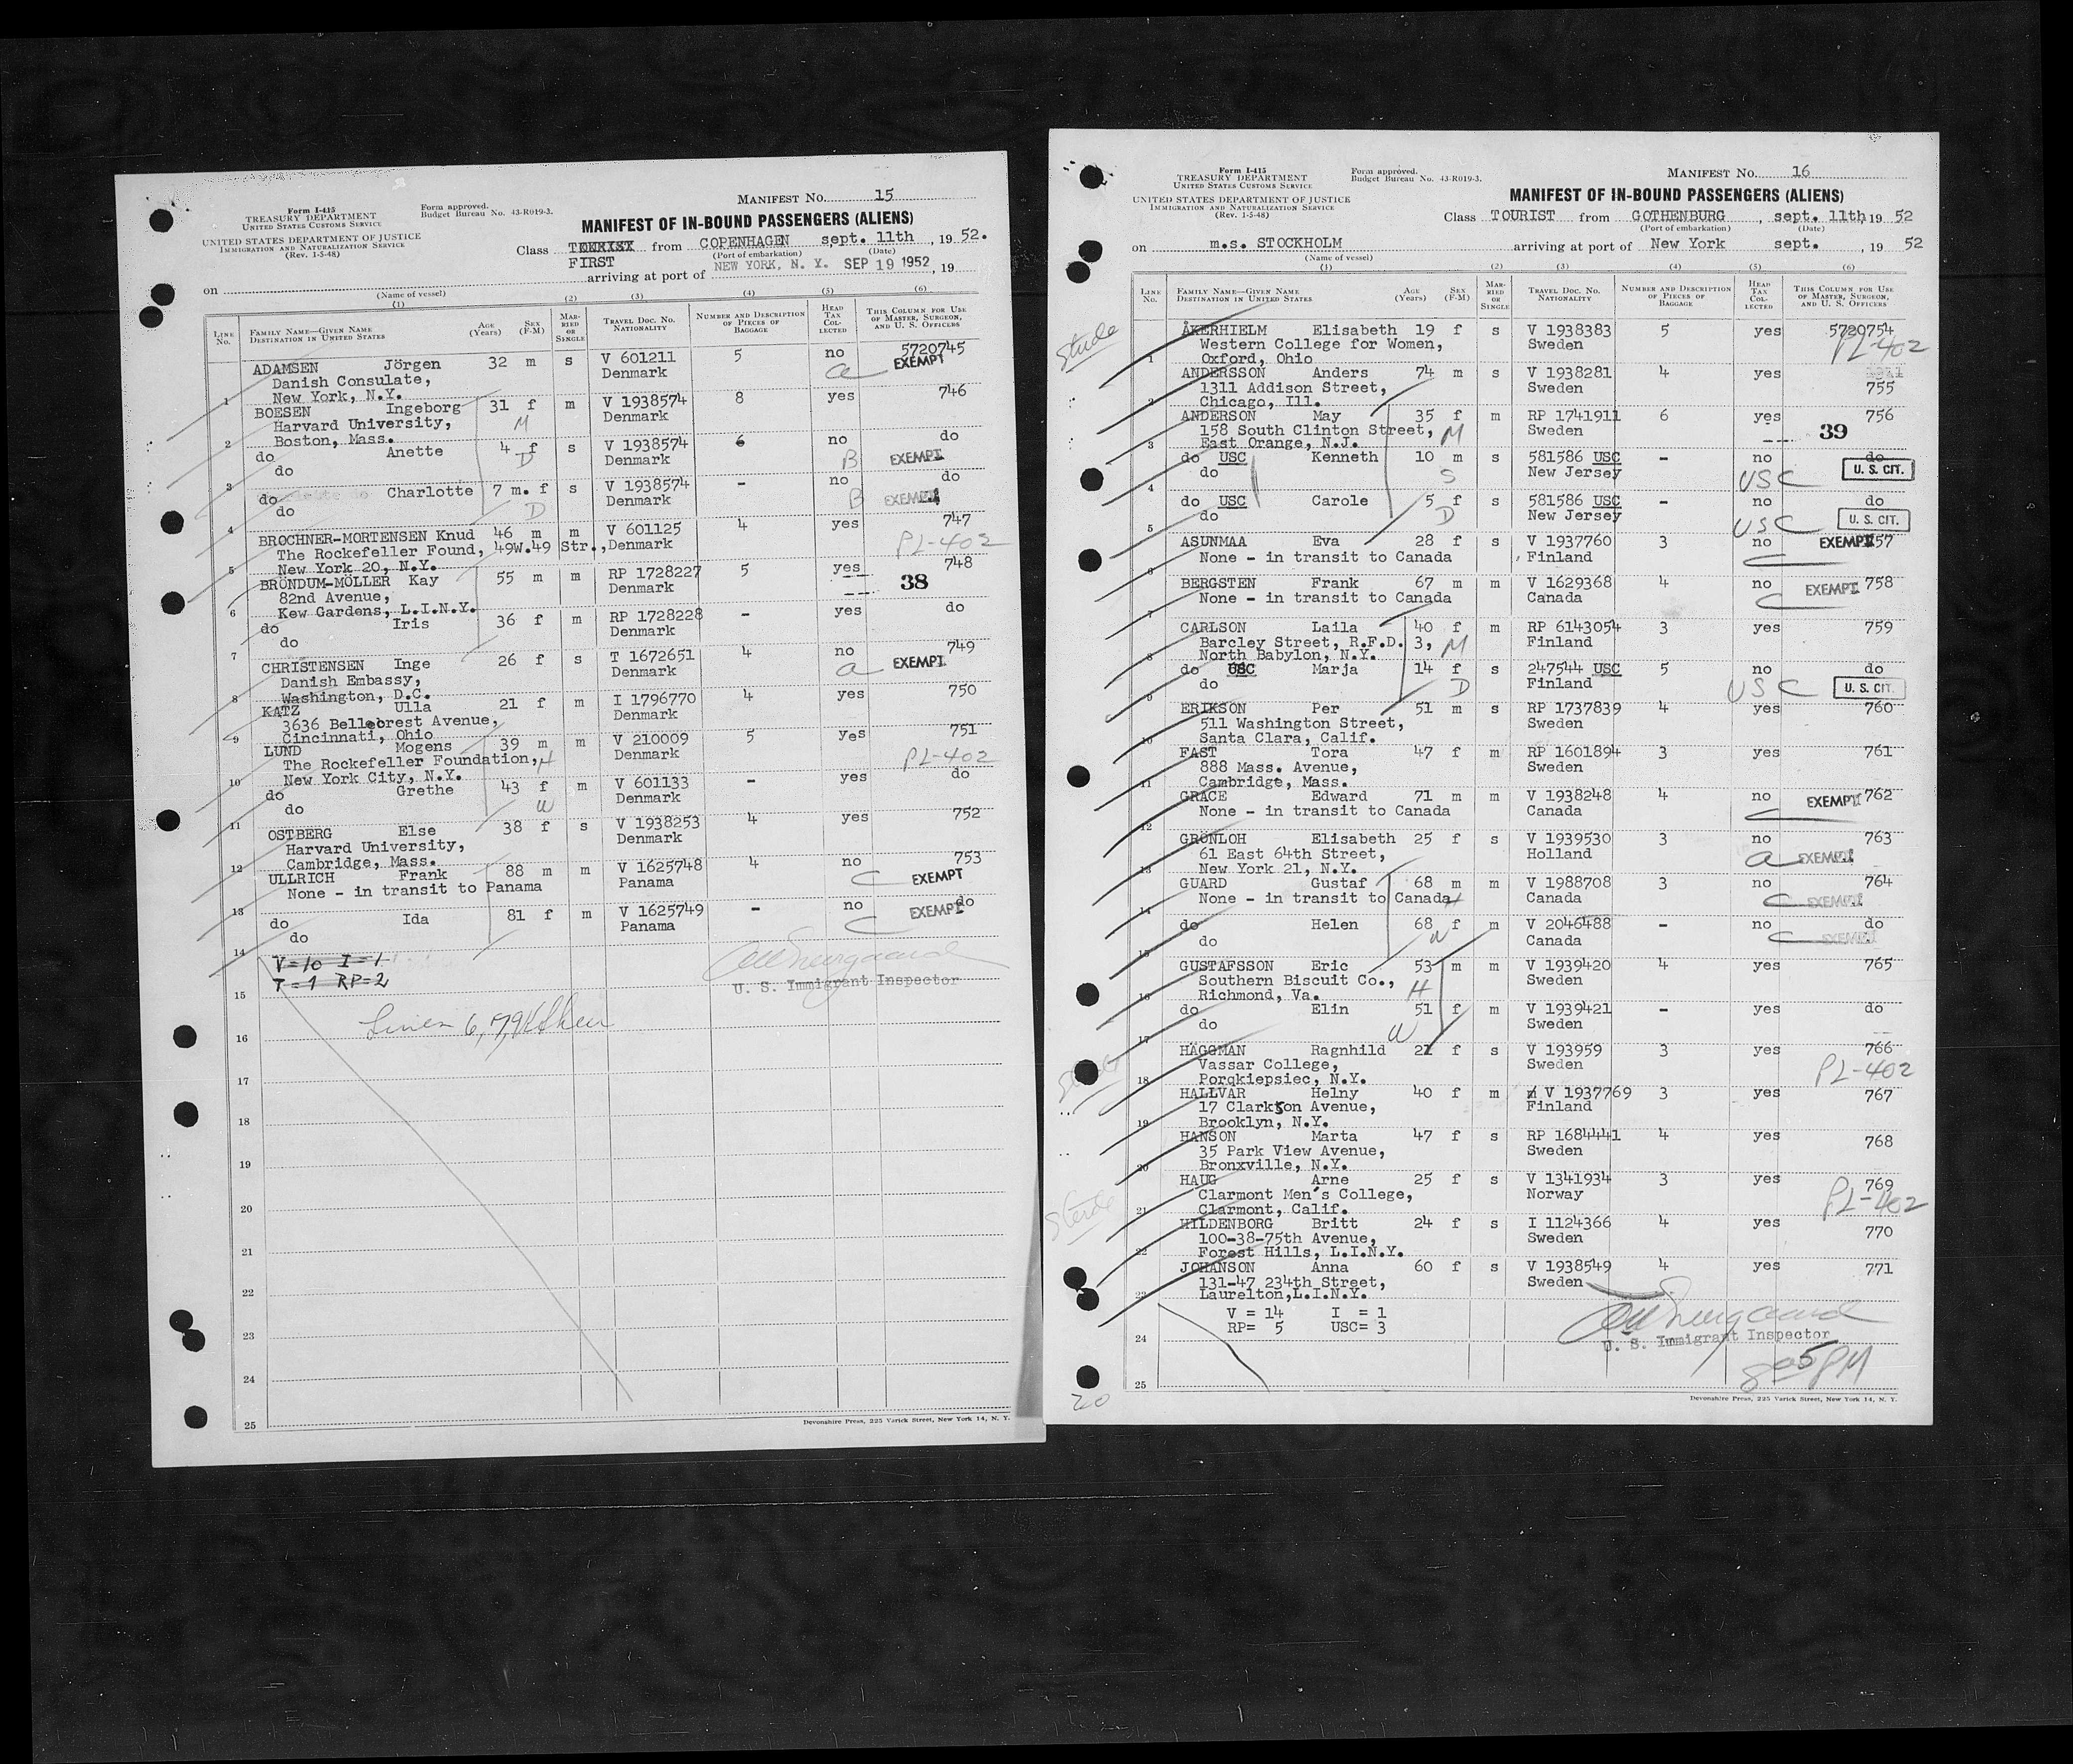 Form I-415
TREASURY DEPARTMENT
UNITED STATES CUSTOMS SERVICE
UNITED STATES DEPARTMENT OF JUSTICE
IMMIGRATION AND NATURALIZATION SERVICE
(Rev. 1-5-48)
Form approved.
Budget Bureau No. 43-R019-3.
MANIFEST No. 15
MANIFEST OF IN-BOUND PASSENGERS (ALIENS)
Class TOURIST from COPENHAGEN sept. 11th, 1952.
FIRST (Port of embarkation) (Date)
arriving at port of NEW YORK, N. Y. SEP 19 1952, 19
on
(Name of vessel)
(1) (2) (3) (4) (5) (6)
LINE No. FAMILY NAME—GIVEN NAME DESTINATION IN UNITED STATES AGE (Years) SEX (F-M) MARRIED OR SINGLE TRAVEL DOC. NO. NATIONALITY NUMBER AND DESCRIPTION OF PIECES OF BAGGAGE HEAD TAX COLLECTED THIS COLUMN FOR USE OF MASTER, SURGEON, AND U. S. OFFICERS
ADAMSEN Jörgen 32 m s V 601211 5 no 5720745
Danish Consulate, Denmark a EXEMPT
1 New York, N.Y.
BOESEN Ingeborg 31 f m V 1938574 8 yes 746
Harvard University, M Denmark
2 Boston, Mass.
do Anette 4 f s V 1938574 6 no do
do D Denmark B EXEMPT
3
do Charlotte 7 m. f s V 1938574 - no do
do D Denmark B EXEMPT
4
BROCHNER-MORTENSEN Knud 46 m m V 601125 4 yes 747
The Rockefeller Found, 49W.49 Str., Denmark PL-402
5 New York 20, N.Y.
BRÖNDUM-MÖLLER Kay 55 m m RP 1728227 5 yes 748
82nd Avenue, Denmark 38
6 Kew Gardens, L.I.N.Y.
do Iris 36 f m RP 1728228 - yes do
do Denmark
7
CHRISTENSEN Inge 26 f s T 1672651 4 no 749
Danish Embassy, Denmark a EXEMPT
8 Washington, D.C.
KATZ Ulla 21 f m I 1796770 4 yes 750
3636 Bellecrest Avenue, Denmark
9 Cincinnati, Ohio
LUND Mogens 39 m m V 210009 5 yes 751
The Rockefeller Foundation, H Denmark PL-402
10 New York City, N.Y.
do Grethe 43 f m V 601133 - yes do
do W Denmark
11
OSTBERG Else 38 f s V 1938253 4 yes 752
Harvard University, Denmark
12 Cambridge, Mass.
ULLRICH Frank 88 m m V 1625748 4 no 753
None - in transit to Panama Panama C EXEMPT
13
do Ida 81 f m V 1625749 - no do
do Panama C EXEMPT
14
V=10 I=1
T=1 RP=2
U. S. Immigrant Inspector
15
Lines 6, 7, 9
16
17
18
19
20
21
22
23
24
25
Devonshire Press, 225 Varick Street, New York 14, N. Y.
Form I-415
TREASURY DEPARTMENT
UNITED STATES CUSTOMS SERVICE
UNITED STATES DEPARTMENT OF JUSTICE
IMMIGRATION AND NATURALIZATION SERVICE
(Rev. 1-5-48)
Form approved.
Budget Bureau No. 43-R019-3.
MANIFEST No. 16
MANIFEST OF IN-BOUND PASSENGERS (ALIENS)
Class TOURIST from GOTHENBURG, sept. 11th 19 52
(Port of embarkation) (Date)
on m.s. STOCKHOLM arriving at port of New York sept., 19 52
(Name of vessel)
(1) (2) (3) (4) (5) (6)
LINE No. FAMILY NAME—GIVEN NAME DESTINATION IN UNITED STATES AGE (Years) SEX (F-M) MARRIED OR SINGLE TRAVEL DOC. NO. NATIONALITY NUMBER AND DESCRIPTION OF PIECES OF BAGGAGE HEAD TAX COLLECTED THIS COLUMN FOR USE OF MASTER, SURGEON, AND U. S. OFFICERS
ÅKERHIELM Elisabeth 19 f s V 1938383 5 yes 5720754
Western College for Women, Sweden PL-402
1 Oxford, Ohio
ANDERSSON Anders 74 m s V 1938281 4 yes
1311 Addison Street, Sweden 755
2 Chicago, Ill.
ANDERSON May 35 f m RP 1741911 6 yes 756
158 South Clinton Street, M Sweden 39
3 East Orange, N.J.
do USC Kenneth 10 m s 581586 USC - no do
do S New Jersey USC U. S. CIT.
4
do USC Carole 5 f s 581586 USC - no do
do D New Jersey USC U. S. CIT.
5
ASUNMAA Eva 28 f s V 1937760 3 no EXEMPT 757
None - in transit to Canada Finland C
6
BERGSTEN Frank 67 m m V 1629368 4 no EXEMPT 758
None - in transit to Canada Canada C
7
CARLSON Laila 40 f m RP 6143054 3 yes 759
Barcley Street, R.F.D. 3, M Finland
8 North Babylon, N.Y.
do USC Marja 14 f s 247544 USC 5 no do
do D Finland USC U. S. CIT.
9
ERIKSON Per 51 m s RP 1737839 4 yes 760
511 Washington Street, Sweden
10 Santa Clara, Calif.
FAST Tora 47 f m RP 1601894 3 yes 761
888 Mass. Avenue, Sweden
11 Cambridge, Mass.
GRACE Edward 71 m m V 1938248 4 no EXEMPT 762
None - in transit to Canada Canada C
12
GRÖNLOH Elisabeth 25 f s V 1939530 3 no 763
61 East 64th Street, Holland a EXEMPT
13 New York 21, N.Y.
GUARD Gustaf 68 m m V 1988708 3 no 764
None - in transit to Canada H Canada C EXEMPT
14
do Helen 68 f m V 2046488 - no do
do W Canada C EXEMPT
15
GUSTAFSSON Eric 53 m m V 1939420 4 yes 765
Southern Biscuit Co., H Sweden
16 Richmond, Va.
do Elin 51 f m V 1939421 - yes do
do W Sweden
17
HÄGGMAN Ragnhild 21 f s V 193959 3 yes 766
Vassar College, Sweden PL-402
18 Porqkiepsiec, N.Y.
HALLVAR Helny 40 f m V 1937769 3 yes 767
17 Clarkson Avenue, Finland
19 Brooklyn, N.Y.
HANSON Marta 47 f s RP 1684441 4 yes 768
35 Park View Avenue, Sweden
20 Bronxville, N.Y.
HAUG Arne 25 f s V 1341934 3 yes 769
Clarmont Men's College, Norway PL-402
21 Clarmont, Calif.
HILDENBORG Britt 24 f s I 1124366 4 yes 770
100-38-75th Avenue, Sweden
22 Forest Hills, L.I.N.Y.
JOHANSON Anna 60 f s V 1938549 4 yes 771
131-47 234th Street, Sweden
23 Laurelton, L.I.N.Y.
V = 14 I = 1
RP= 5 USC= 3
24
U. S. Immigrant Inspector
8 05 PM
25
20
Devonshire Press, 225 Varick Street, New York 14, N. Y.